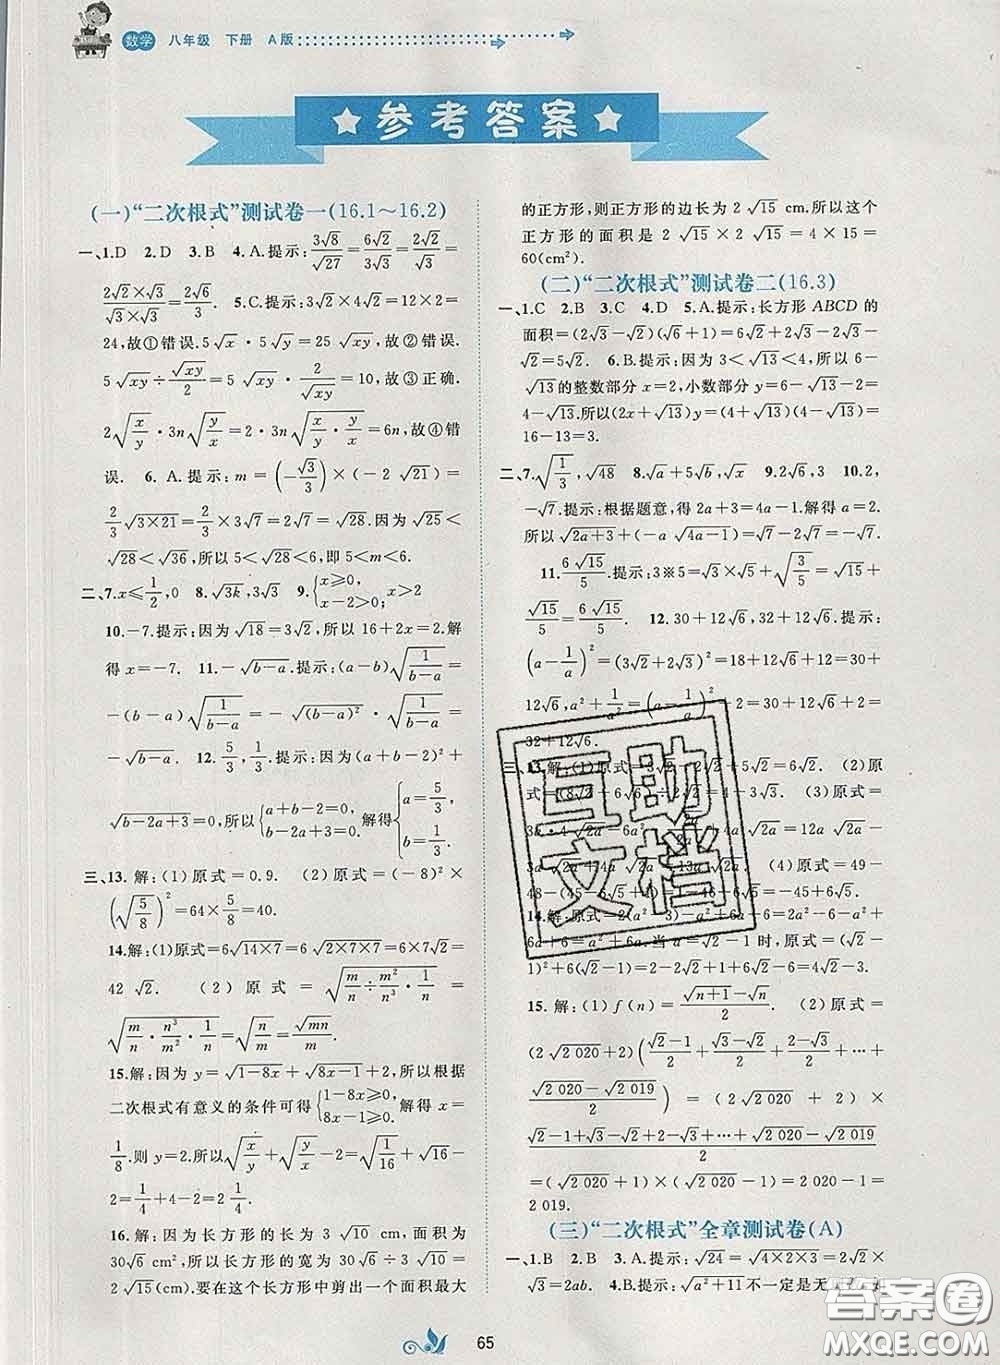 数学 八年级 下册 A版
参考答案
(一)“二次根式”测试卷一(16.1～16.2)
一、1.D 2.D 3.B 4.A.提示:3√8/√27=6√2/3√3=2√2/√3=
2√2×√3/√3×√3=2√6/3. 5.C.提示:3√2×4√2=12×2=
24,故①错误.5√x·5√y=25√xy,故②错误.
5√xy÷√xy/2=5√xy·2/√xy=10,故③正确.
2√(x/y)·3n√(y/x)=2·3n√(x/y·y/x)=6n,故④错
误. 6.A.提示:m=(-√3/3)×(-2√21)=
2/3√(3×21)=2/3×3√7=2√7=√28.因为√25<
√28<√36,所以5<√28<6,即5<m<6.
二、7.x≤1/2,0 8.√3k,3√3 9.{x≥0, x-2>0; x>2
10.-7.提示:因为√18=3√2,所以16+2x=2.解
得x=-7. 11.-√(b-a).提示:(a-b)√(1/(b-a))=
-(b-a)√(1/(b-a))=-√(b-a)²·√(1/(b-a))=
-√(b-a) 12.5/3,1/3.提示:因为(a+b-2)²+
√(b-2a+3)=0,所以{a+b-2=0, b-2a+3=0. 解得{a=5/3, b=1/3.
三、13.解:(1)原式=0.9. (2)原式=(-8)²×
(√(5/8))²=64×5/8=40.
14.解:(1)原式=6√(14×7)=6√(2×7×7)=
42√2. (2)原式=√(m/n÷m²/n³·1/n)=
√(m/n·n³/m²·1/n)=√(n/m)=√mn/m.
15.解:因为y=√(1-8x)+√(8x-1)+2,所以根据
二次根式有意义的条件可得{1-8x≥0, 8x-1≥0. 解得x=
1/8.则y=2.所以√(x/y)+√(y/x)-2=√(1/16)+√16-
2=1/4+4-2=2 1/4.
16.解:因为长方形的长为3√10 cm,面积为
30√6 cm²,所以长方形的宽为30√6÷3√10=
2√15(cm).要在这个长方形中剪出一个面积最大
的正方形,则正方形的边长为2√15 cm.所以这个
正方形的面积是2√15×2√15=4×15=
60(cm²).
(二)“二次根式”测试卷二(16.3)
一、1.C 2.B 3.C 4.D 5.A.提示:长方形ABCD的
面积=(2√3-√2)(√6+1)=6√2+2√3-2√3-
√2=5√2. 6.B.提示:因为3<√13<4,所以6-
√13的整数部分x=2,小数部分y=6-√13-2=
4-√13.所以(2x+√13)y=(4+√13)(4-√13)=
16-13=3.
二、7.√(1/3),√48 8.√a+5√b,√x 9.2√6,3 10.2,
-√7.提示:根据题意,得2a+3=4a-1.解得a=2.
所以√(2a+3)+(-2√(4a-1))=√7+(-2√7)=-√7.
11.6√15/5.提示:3※5=√3×√5+√(3/5)=√15+
√15/5=6√15/5. 12.30+12√6,32+12√6.提示:
(a-1/a)²=(3√2+2√3)²=18+12√6+12=30+
12√6,a²+1/a²=(a-1/a)²+2=30+12√6+2=
32+12√6.
三、13.解:(1)原式=3√2-2√2+5√2=6√2. (2)原
式=(8√2+6√6-6√6)÷2√2=4-3√3. (3)原式=
3a·4√2a=6a²
3a√2a (4)原式=49-
48-(45+1-6√5)=1-46+6√5=-45+6√5.
14.解:原式=2(a²-3)-a²+6a+6=2a²-6-a²+
6a+6=a²+6a.当a=√2-1时,原式=(√2-
1)²+6(√2-1)=2-2√2+1+6√2-6=4√2-3.
15.解:(1)f(n)=(√(n+1)-√n)/2. (2)原式=
(2√2 020+2)((√2-1)/2+(√3-√2)/2+(2-√3)/2+…+
(√2 020-√2 019)/2)=(2√2 020+2)×
(√2-1+√3-√2+2-√3+…+√2 020-√2 019)/2
=(√2 020+1)(√2 020-1)=2 020-1=
2 019.
(三)“二次根式”全章测试卷(A)
一、1.B 2.B 3.A.提示:√24=√(4×2×3)=2√2×
√3=2ab. 4.B.提示:√(a²+11)不一定是无
互助
文档
答案圈
MXQE.COM
65